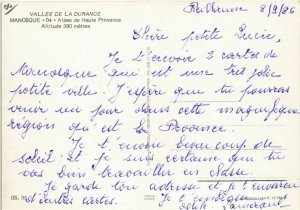 VALLEE DE LA DURANCE
MANOSQUE - 04 - Alpes de Haute Provence
Altitude 390 mètres
8/9/86
Chère petite Lucie,
Je t'envoie 2 cartes de
Manosque qui est une très jolie
petite ville. J'espère que tu pourras
venir un jour dans cette magnifique
région qui est la Provence.
Je t'envoie beaucoup de
soleil et je suis certaine que tu
vas bien travailler en
Je garde ton adresse et je t'enverrai
d'autres cartes. Je t'embrasse